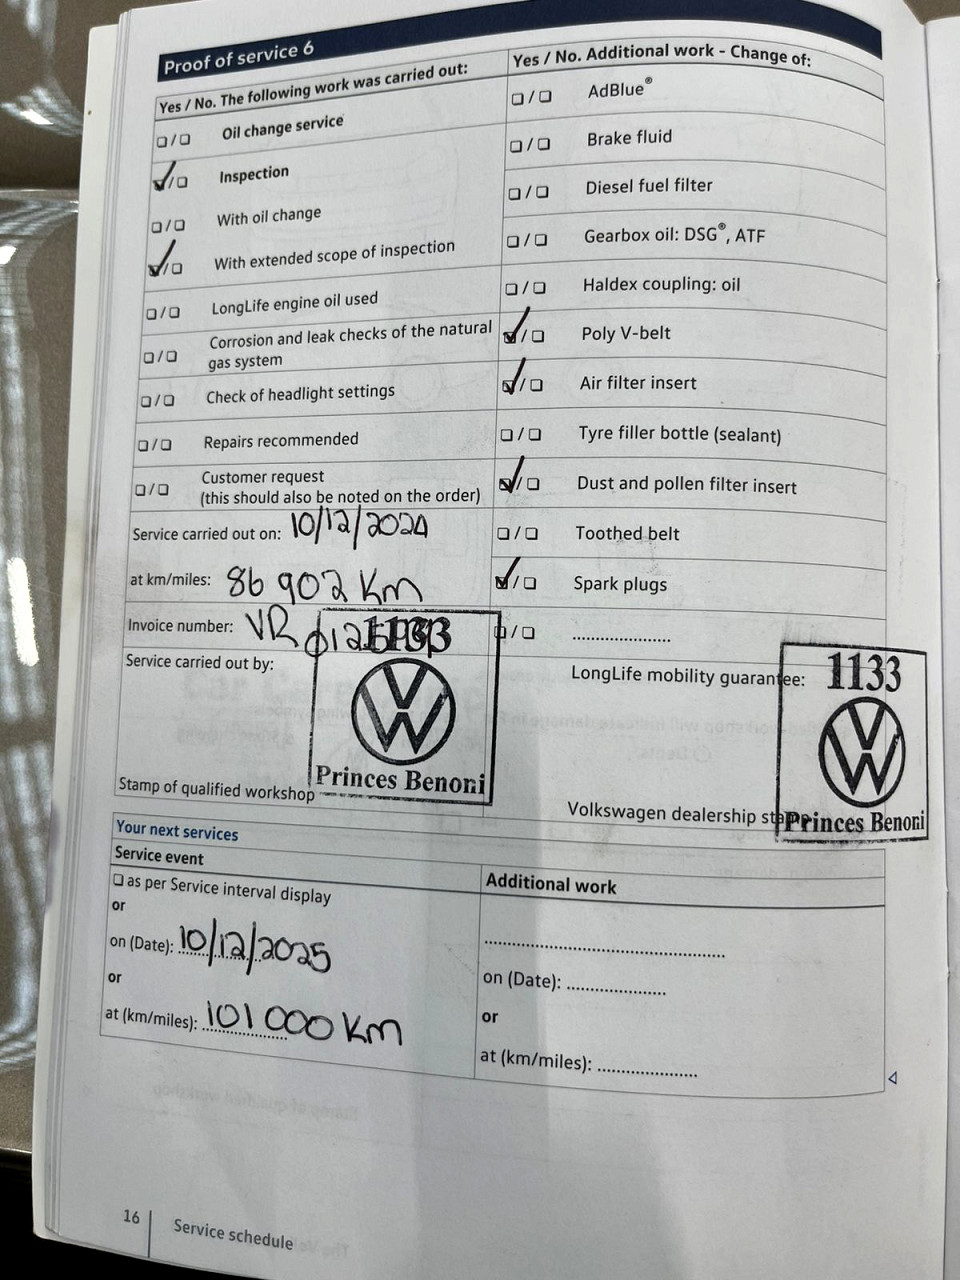 Proof of service 6
Yes / No. The following work was carried out:
❑ / ❑ Oil change service
☑ / ❑ Inspection
❑ / ❑ With oil change
☑ / ❑ With extended scope of inspection
❑ / ❑ LongLife engine oil used
❑ / ❑ Corrosion and leak checks of the natural
gas system
❑ / ❑ Check of headlight settings
❑ / ❑ Repairs recommended
❑ / ❑ Customer request
(this should also be noted on the order)
Service carried out on: 10/12/2024
at km/miles: 86 902 Km
Invoice number: VR
1133
Service carried out by:
Princes Benoni
Stamp of qualified workshop
Yes / No. Additional work - Change of:
❑ / ❑ AdBlue®
❑ / ❑ Brake fluid
❑ / ❑ Diesel fuel filter
❑ / ❑ Gearbox oil: DSG®, ATF
❑ / ❑ Haldex coupling: oil
☑ / ❑ Poly V-belt
☑ / ❑ Air filter insert
❑ / ❑ Tyre filler bottle (sealant)
☑ / ❑ Dust and pollen filter insert
❑ / ❑ Toothed belt
☑ / ❑ Spark plugs
❑ / ❑ .....................
LongLife mobility guarantee: 1133
Volkswagen dealership
Princes Benoni
Your next services
Service event
❑ as per Service interval display
or
on (Date): 10/12/2025
or
at (km/miles): 101 000 Km
Additional work
.....................
on (Date): .....................
or
at (km/miles): .....................
16 Service schedule